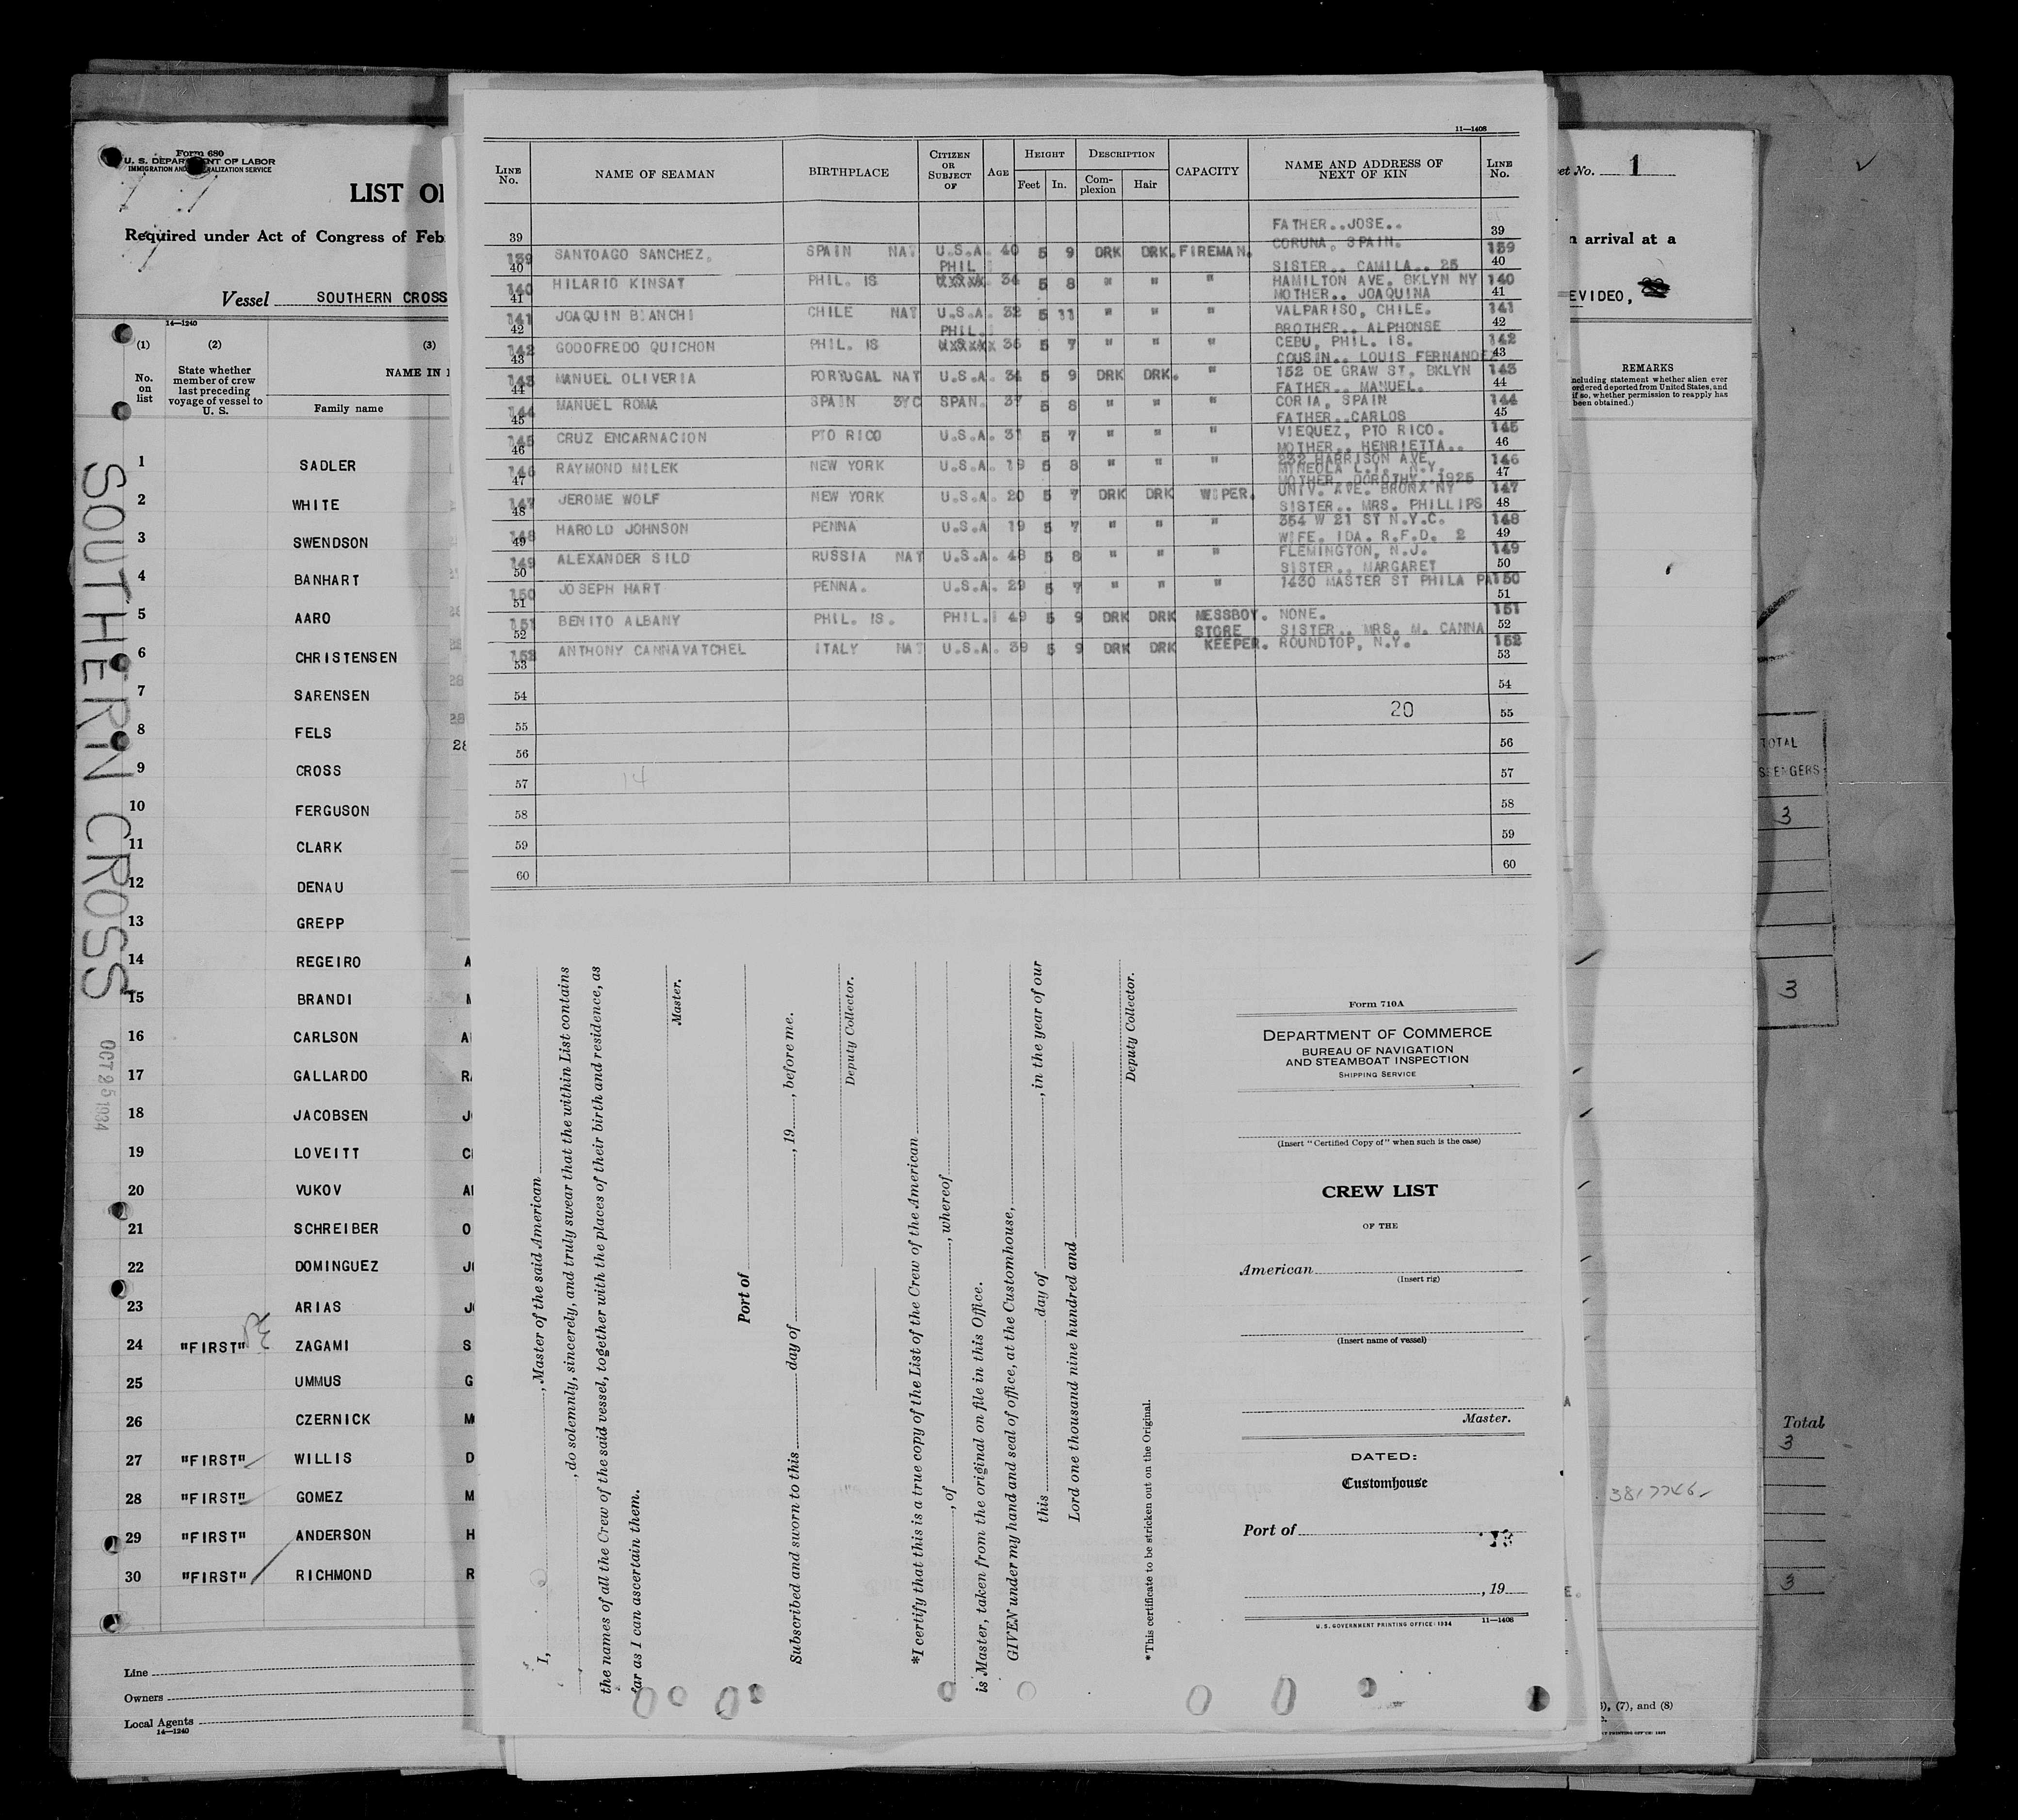 Form 680
U. S. DEPARTMENT OF LABOR
IMMIGRATION AND NATURALIZATION SERVICE
LIST OF
Required under Act of Congress of Feb
Vessel SOUTHERN CROSS
14—1240
(1) (2) (3)
No. on list
State whether member of crew last preceding voyage of vessel to U. S.
NAME IN
Family name
1 SADLER
2 WHITE
3 SWENDSON
4 BANHART
5 AARO
6 CHRISTENSEN
7 SARENSEN
8 FELS
9 CROSS
10 FERGUSON
11 CLARK
12 DENAU
13 GREPP
14 REGEIRO A
15 BRANDI
16 CARLSON A
17 GALLARDO RA
18 JACOBSEN JO
19 LOVEITT C
20 VUKOV A
21 SCHREIBER O
22 DOMINGUEZ JO
23 ARIAS JO
24 "FIRST" ZAGAMI S
25 UMMUS G
26 CZERNICK M
27 "FIRST" WILLIS D
28 "FIRST" GOMEZ M
29 "FIRST" ANDERSON H
30 "FIRST" RICHMOND R
Line
Owners
Local Agents
14—1240
SOUTHERN CROSS
OCT 25 1934
11—1408
LINE No. NAME OF SEAMAN BIRTHPLACE CITIZEN OR SUBJECT OF AGE HEIGHT Feet In. DESCRIPTION Complexion Hair CAPACITY NAME AND ADDRESS OF NEXT OF KIN LINE No.
39 FATHER..JOSE.. 39
139 SANTOAGO SANCHEZ. SPAIN NAT U.S.A. 40 5 9 DRK DRK. FIREMAN. CORUNA, SPAIN. 139
40 PHIL SISTER.. CAMILA.. 25 40
140 HILARIO KINSAT PHIL. IS 34 5 8 " " " HAMILTON AVE. BKLYN NY 140
41 MOTHER.. JOAQUINA 41
141 JOAQUIN BIANCHI CHILE NAT U.S.A. 32 5 11 " " " VALPARISO, CHILE. 141
42 PHIL. BROTHER.. ALPHONSE 42
142 GODOFREDO QUICHON PHIL. IS 36 5 7 " " " CEBU, PHIL. IS. 142
43 COUSIN.. LOUIS FERNANDEZ 43
143 MANUEL OLIVERIA PORTUGAL NAT U.S.A. 34 5 9 DRK DRK. " 152 DE GRAW ST. BKLYN 143
44 FATHER.. MANUEL. 44
144 MANUEL ROMA SPAIN 3YC SPAN. 37 5 8 " " " CORIA, SPAIN 144
45 FATHER..CARLOS 45
145 CRUZ ENCARNACION PTO RICO U.S.A. 31 5 7 " " " VIEQUEZ, PTO RICO. 145
46 MOTHER.. HENRIETTA.. 46
146 RAYMOND MILEK NEW YORK U.S.A. 19 5 8 " " " 232 HARRISON AVE. MYNEOLA L.I. N.Y. 146
47 MOTHER..DOROTHY..1925 47
147 JEROME WOLF NEW YORK U.S.A. 20 5 7 DRK DRK WIPER. UNIV. AVE. BRONX NY 147
48 SISTER.. MRS. PHILLIPS 48
148 HAROLD JOHNSON PENNA U.S.A 19 5 7 " " " 354 W 21 ST N.Y.C. 148
49 WIFE. IDA. R.F.D. 2 49
149 ALEXANDER SILD RUSSIA NAT U.S.A. 48 5 8 " " " FLEMINGTON, N.J. 149
50 SISTER.. MARGARET 50
150 JOSEPH HART PENNA. U.S.A. 29 5 7 " " " 1430 MASTER ST PHILA PA 150
51 51
151 BENITO ALBANY PHIL. IS. PHIL. 49 5 9 DRK DRK MESSBOY. NONE. 151
52 STORE SISTER.. MRS. M. CANNA 52
152 ANTHONY CANNAVATCHEL ITALY NAT U.S.A. 39 5 9 DRK DRK KEEPER. ROUNDTOP, N.Y. 152
53 53
54 54
55 20 55
56 56
57 14 57
58 58
59 59
60 60
I, , Master of the said American
, do solemnly, sincerely, and truly swear that the within List contains
the names of all the Crew of the said vessel, together with the places of their birth and residence, as
far as I can ascertain them.
Master.
Port of
Subscribed and sworn to this day of , 19 , before me.
Deputy Collector.
*I certify that this is a true copy of the List of the Crew of the American
, of , whereof
is Master, taken from the original on file in this Office.
GIVEN under my hand and seal of office, at the Customhouse,
this day of , in the year of our
Lord one thousand nine hundred and
Deputy Collector.
*This certificate to be stricken out on the Original.
Form 710A
DEPARTMENT OF COMMERCE
BUREAU OF NAVIGATION
AND STEAMBOAT INSPECTION
SHIPPING SERVICE
(Insert "Certified Copy of" when such is the case)
CREW LIST
OF THE
American
(Insert rig)
(Insert name of vessel)
Master.
DATED:
Customhouse
Port of
, 19
U. S. GOVERNMENT PRINTING OFFICE: 1934 11—1408
et No. 1
n arrival at a
EVIDEO,
REMARKS
(Including statement whether alien ever
ordered deported from United States, and
if so, whether permission to reapply has
been obtained.)
3817746
), (7), and (8)
TOTAL
3
3
Total
3
3